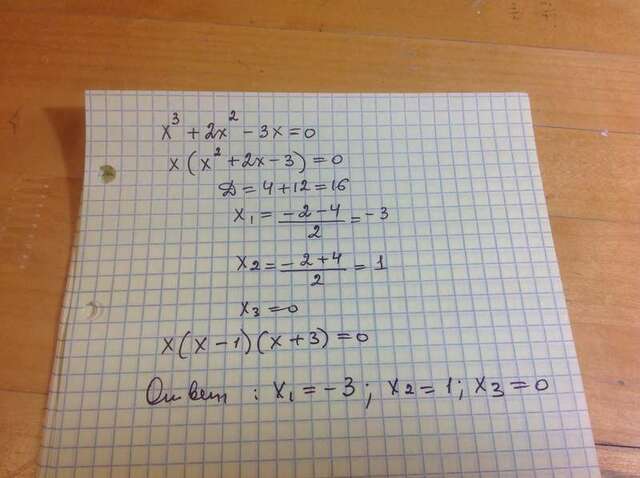 x³ + 2x² - 3x = 0
x(x² + 2x - 3) = 0
Д = 4 + 12 = 16
x₁ = (-2 - 4)/2 = -3
x₂ = (-2 + 4)/2 = 1
x₃ = 0
x(x - 1)(x + 3) = 0
Ответ : x₁ = -3; x₂ = 1; x₃ = 0